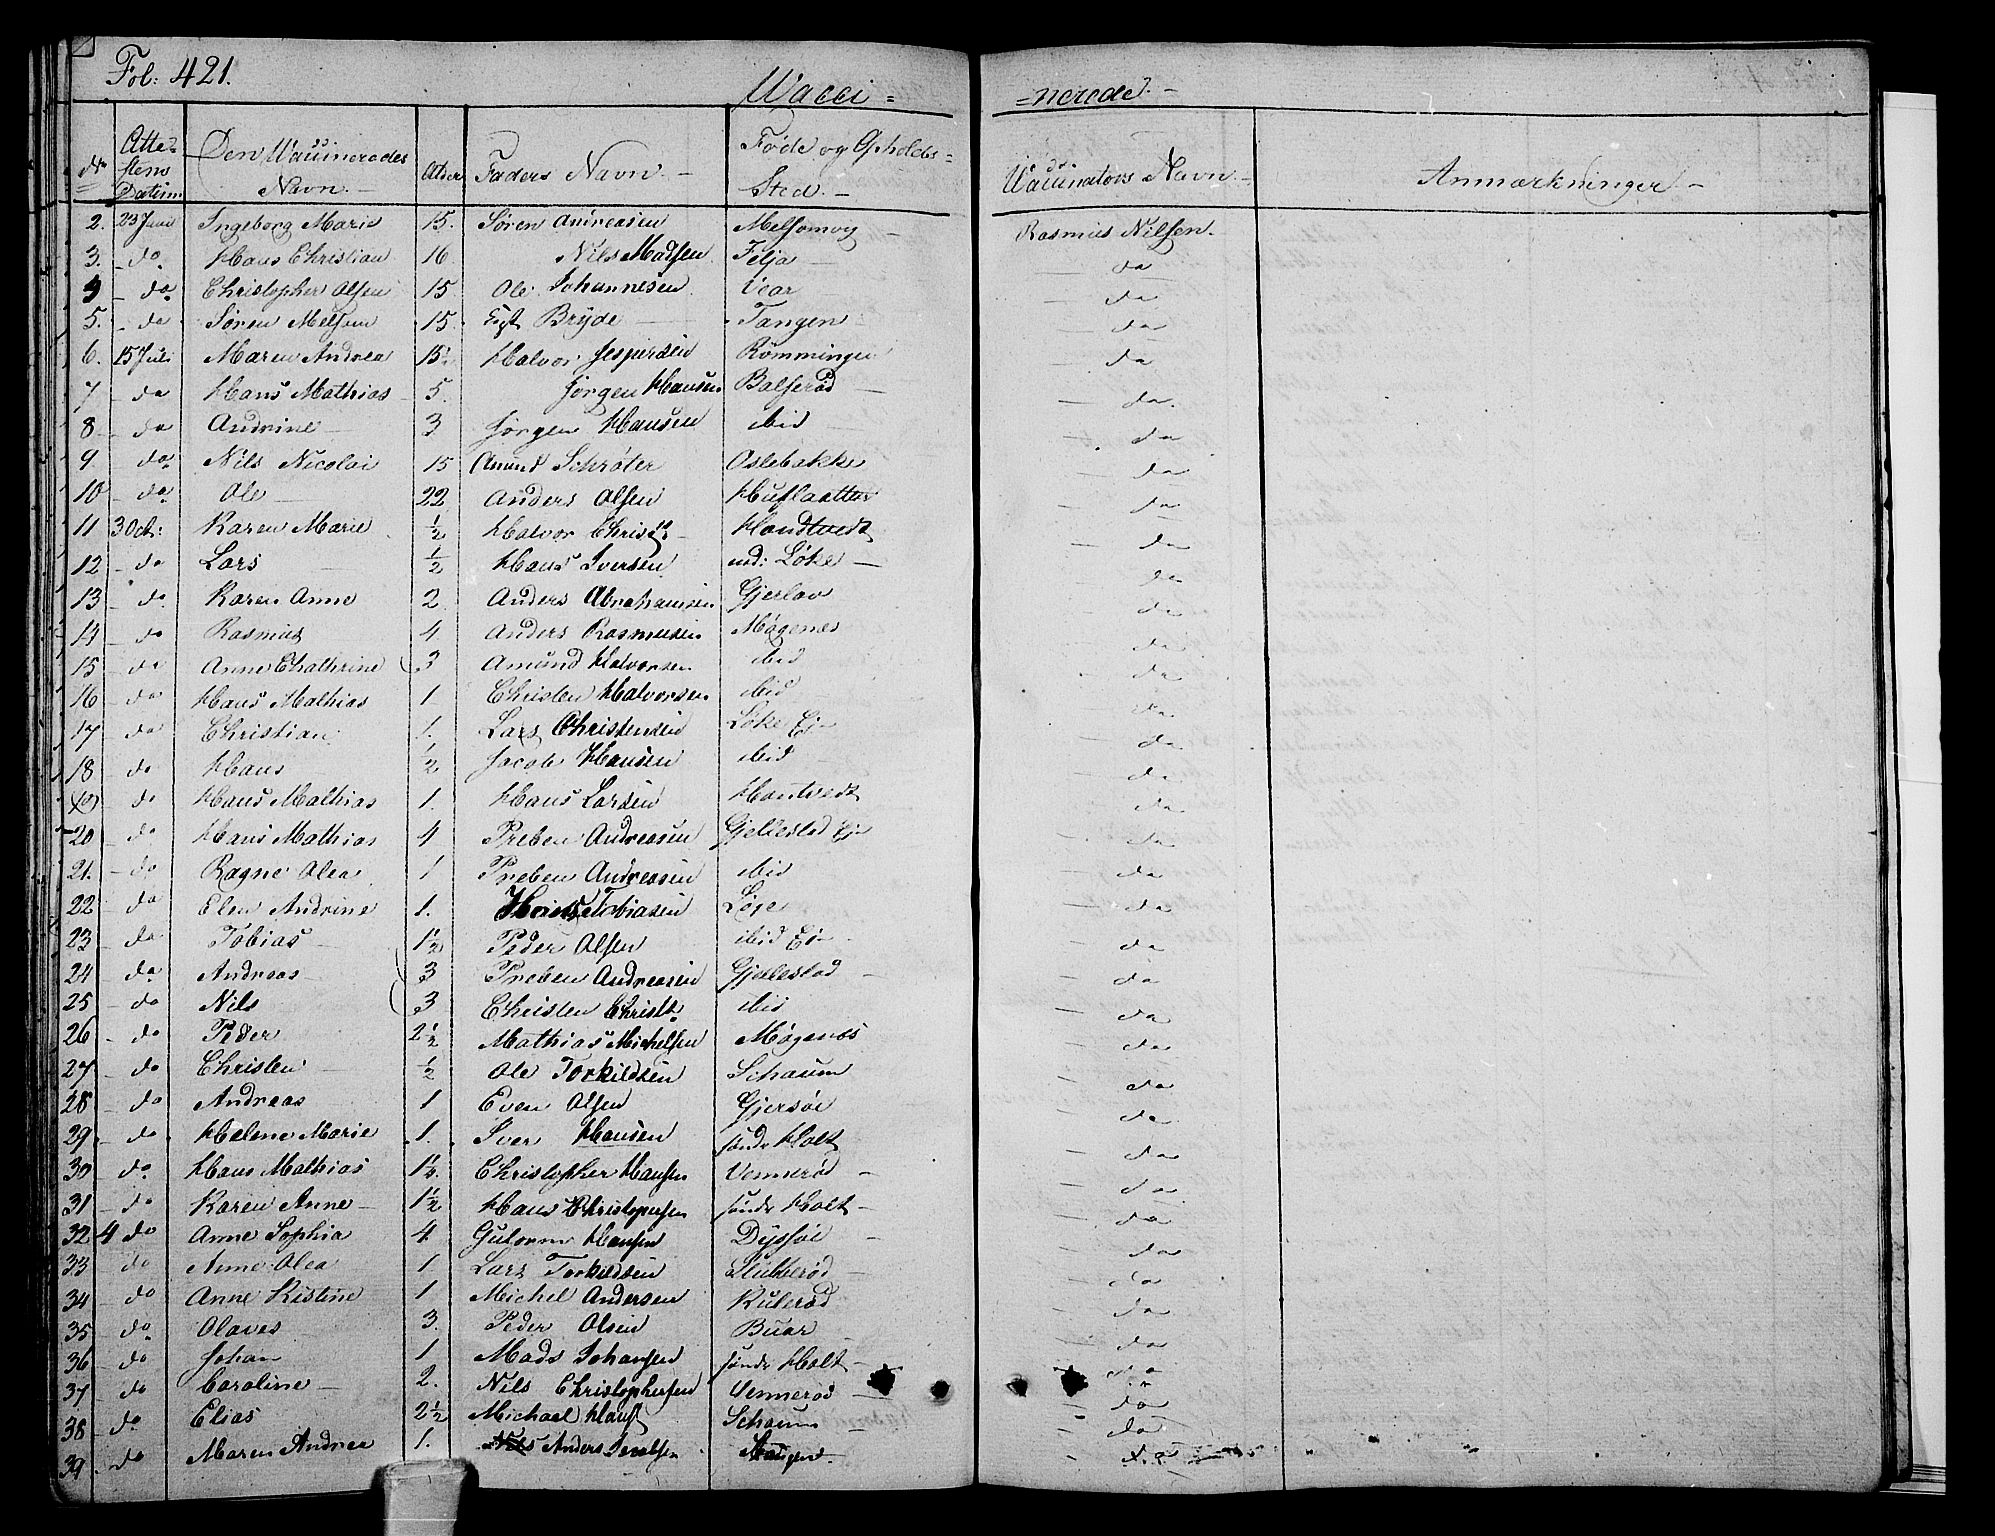 Fol: 421.
Wacci= =nerede. -
No Attestens Datum Den Waccineredes Navn. - Alder Faders Navn. - Føde og Opholds= Sted. - Vaccinators Navn. - Anmærkninger -
2. 23 Juni Ingeborg Marie 15. Søren Andreasen Melsomvig - Rasmus Nilsen.
3. - do Hans Christian 16. Nils Madsen Felja - do
4 - do Christopher Olsen 15. Ole Johannesen Vear - do
5. - do Søren Melsom 15. Bryde - Tangen - do
6. 15 Juli Maren Andrea 15½ Halvor Jespersen Rømmingen - do
7 - do Hans Mathias 5. Jørgen Hansen Balserød - do.
8 - do Andrine - 3 Jørgen Hansen ibid - do
9 do Nils Nicolai 15 Amund Schrøter Oslebakke - do
10 - do Ole - 22 Anders Olsen - do
11 3 Oct: Karen Marie ½ Halvor Christ: - Handtvedt - do
12 - do Lars - ½ Hans Iversen und: Løke - - do
13 - do Karen Anne 2 Anders Abrahamsen Gjerløv - do
14 - do Rasmus 4 Anders Rasmusen Møgenæs - do
15 do Anne Chathrine 3 Amund Halvorsen ibid - do
16 - do Hans Mathias 1 Christen Halvorsen ibid - do
17 do Christian 1. Lars Christensen Løke Ej - do
18 do Hans ½ Jacob Hansen ibid - do.
19 do Hans Mathias 1. Hans Larsen Hantvedt - do
20 do Hans Mathias 4 Preben Andreasen Gjellestad Ej - do
21. - do Ragne Olea 1 Preben Andreasen ibid - do
22 do Elen Andrine 1. Tobiasen Løge - do
23 - do Tobias - 1½ Peder Olsen ibid Ej - - do
24 - do Andreas - 3 Preben Andreasen Gjelestad - - do
25 - do Nils 3 Christen Christ. ibid - do
26 - do Peder 2½ Mathias Michelsen Møgenæs - do
27 - do Christen - ½ Ole Torkildsen Schaum - do
28 - do Andreas 1 Even Olsen Gjersøe - do
29 - do Helene Marie 1. Iver Hansen søndr Holt - do
30 - do Hans Mathias 1½. Christopher Hansen Vennerød - - do
31 - do Karen Anne - 1½ Hans Christophersen søndr Holt - - do
32 4 do Anne Sophia 4 Gulorm Hansen Dyssøe - - do
33 do Anne Olea 1 Lars Torkildsen Stubberød - - do
34 - do Anne Kistine 1 Michel Andersen Rulerød - do
35 - do Olaves 3. Peder Olsen Buar - do
36 - do Johan 1 Mads Johansen søndr Holt - - do
37 - do Caroline - 2. Nils Christophersen Vennerød - do
38 - do Elias 2½ Michael Schaum - do
39. - do Maren Andrea 1. Anders - do